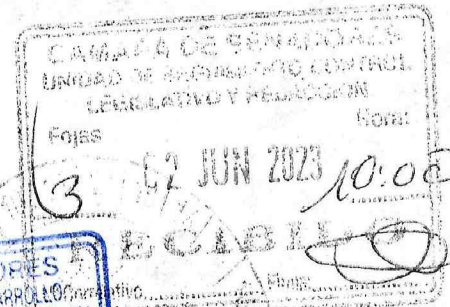 CAMARA DE SENADORES
UNIDAD DE SEGUIMIENTO CONTROL
LEGISLATIVO Y REDACCION
Fojas Hora:
02 JUN 2023 10:00
3
RECIBIDO
Firma
ORES
ARROLLO